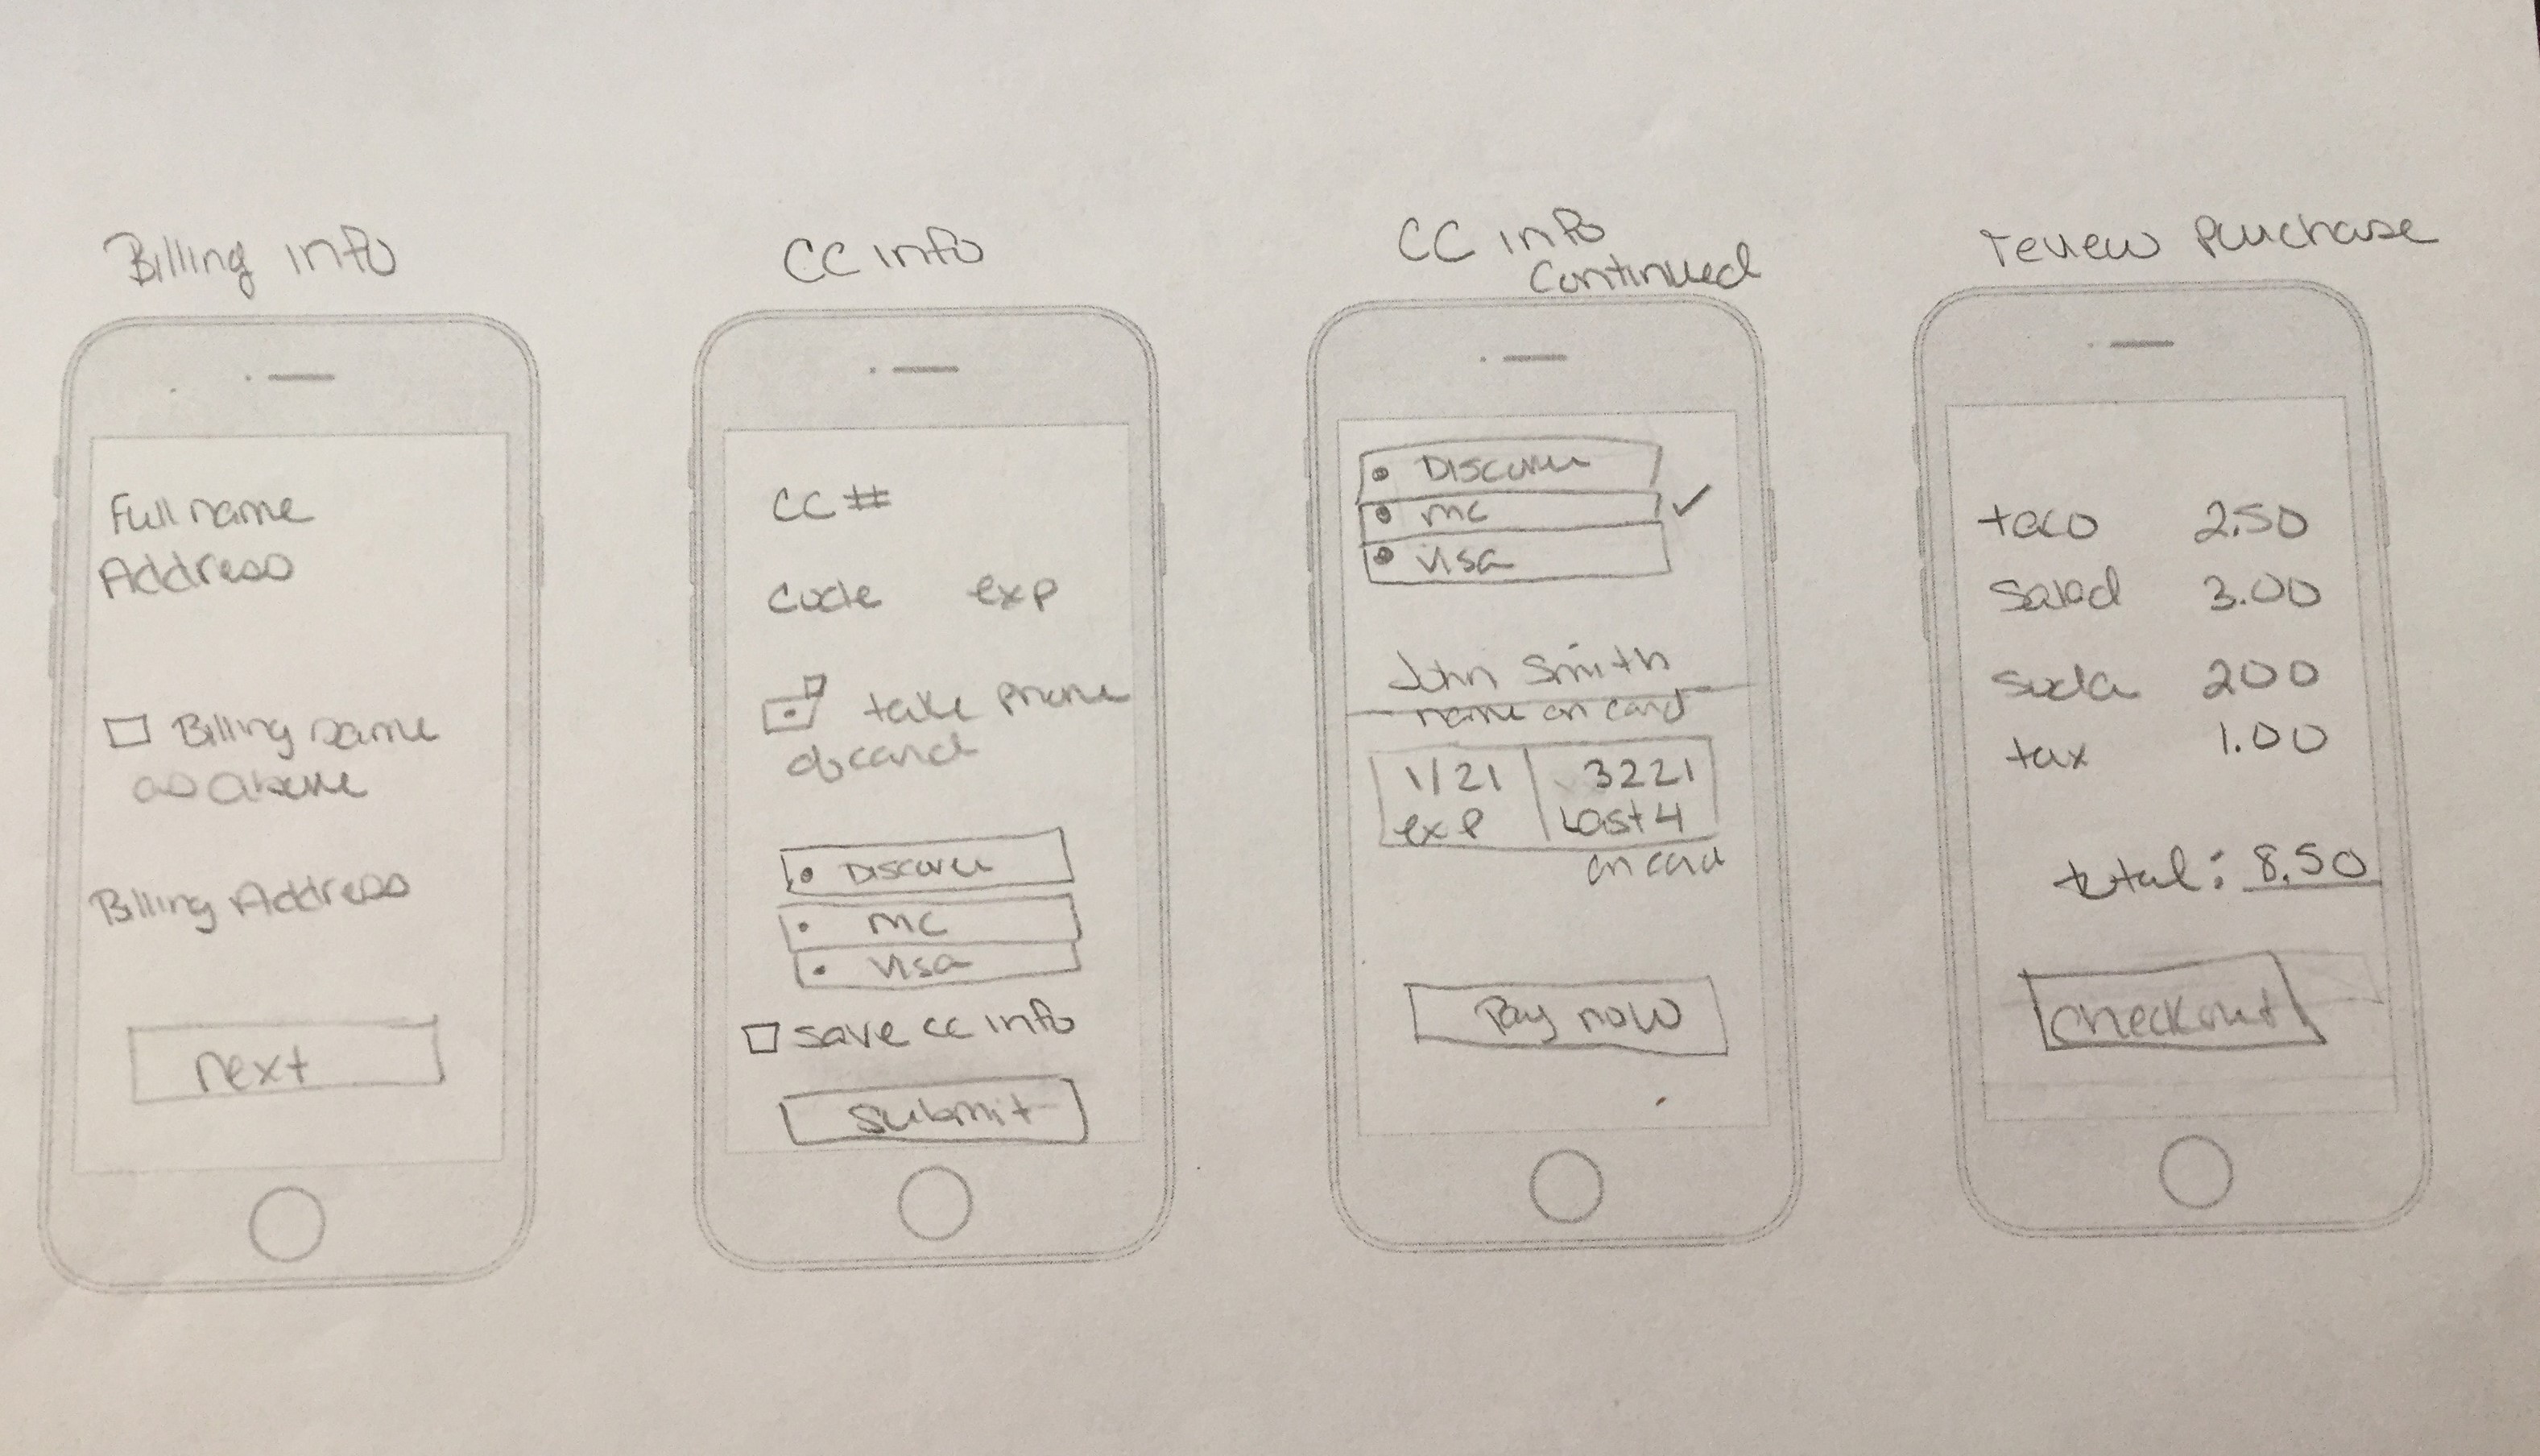 Billing info
Full name
Address
Billing same
as above
Billing Address
next
CC info
CC #
code exp
take phone
of card
Discover
mc
visa
save cc info
submit
CC info
Continued
Discover
mc
visa
John Smith
name on card
1/21 3221
exp Last 4
on card
Pay now
review purchase
taco 2.50
Salad 3.00
soda 200
tax 1.00
total: 8.50
checkout